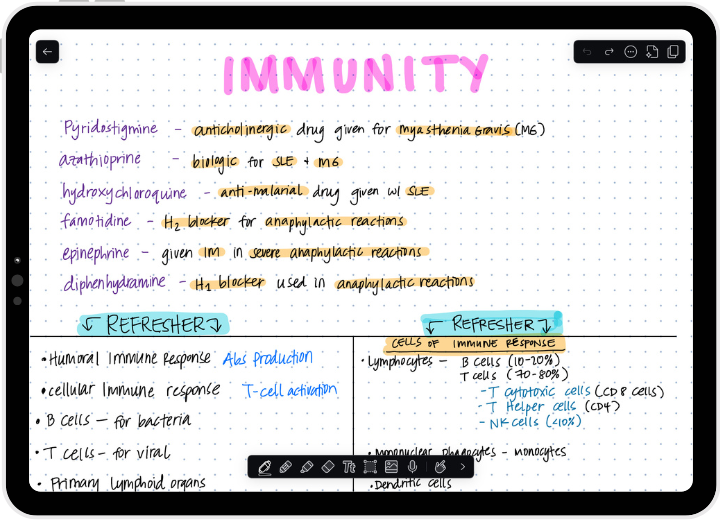 IMMUNITY
Pyridostigmine - anticholinergic drug given for myasthenia Gravis (MG)
azathioprine - biologic for SLE + MG
hydroxychloroquine - anti-malarial drug given w/ SLE
famotidine - H2 blocker for anaphylactic reactions
epinephrine - given IM in severe anaphylactic reactions
diphenhydramine - H1 blocker used in anaphylactic reactions
REFRESHER
• Humoral Immune Response Abs Production
• cellular Immune response T-cell activation
• B cells - for bacteria
• T cells - for viral
• Primary lymphoid organs
REFRESHER
CELLS OF IMMUNE RESPONSE
• Lymphocytes - B cells (10-20%)
T cells (70-80%)
- T cytotoxic cells (CD8 cells)
- T Helper cells (CD4)
- NK cells (<10%)
• mononuclear phagocytes - monocytes
• Dendritic cells
Tt